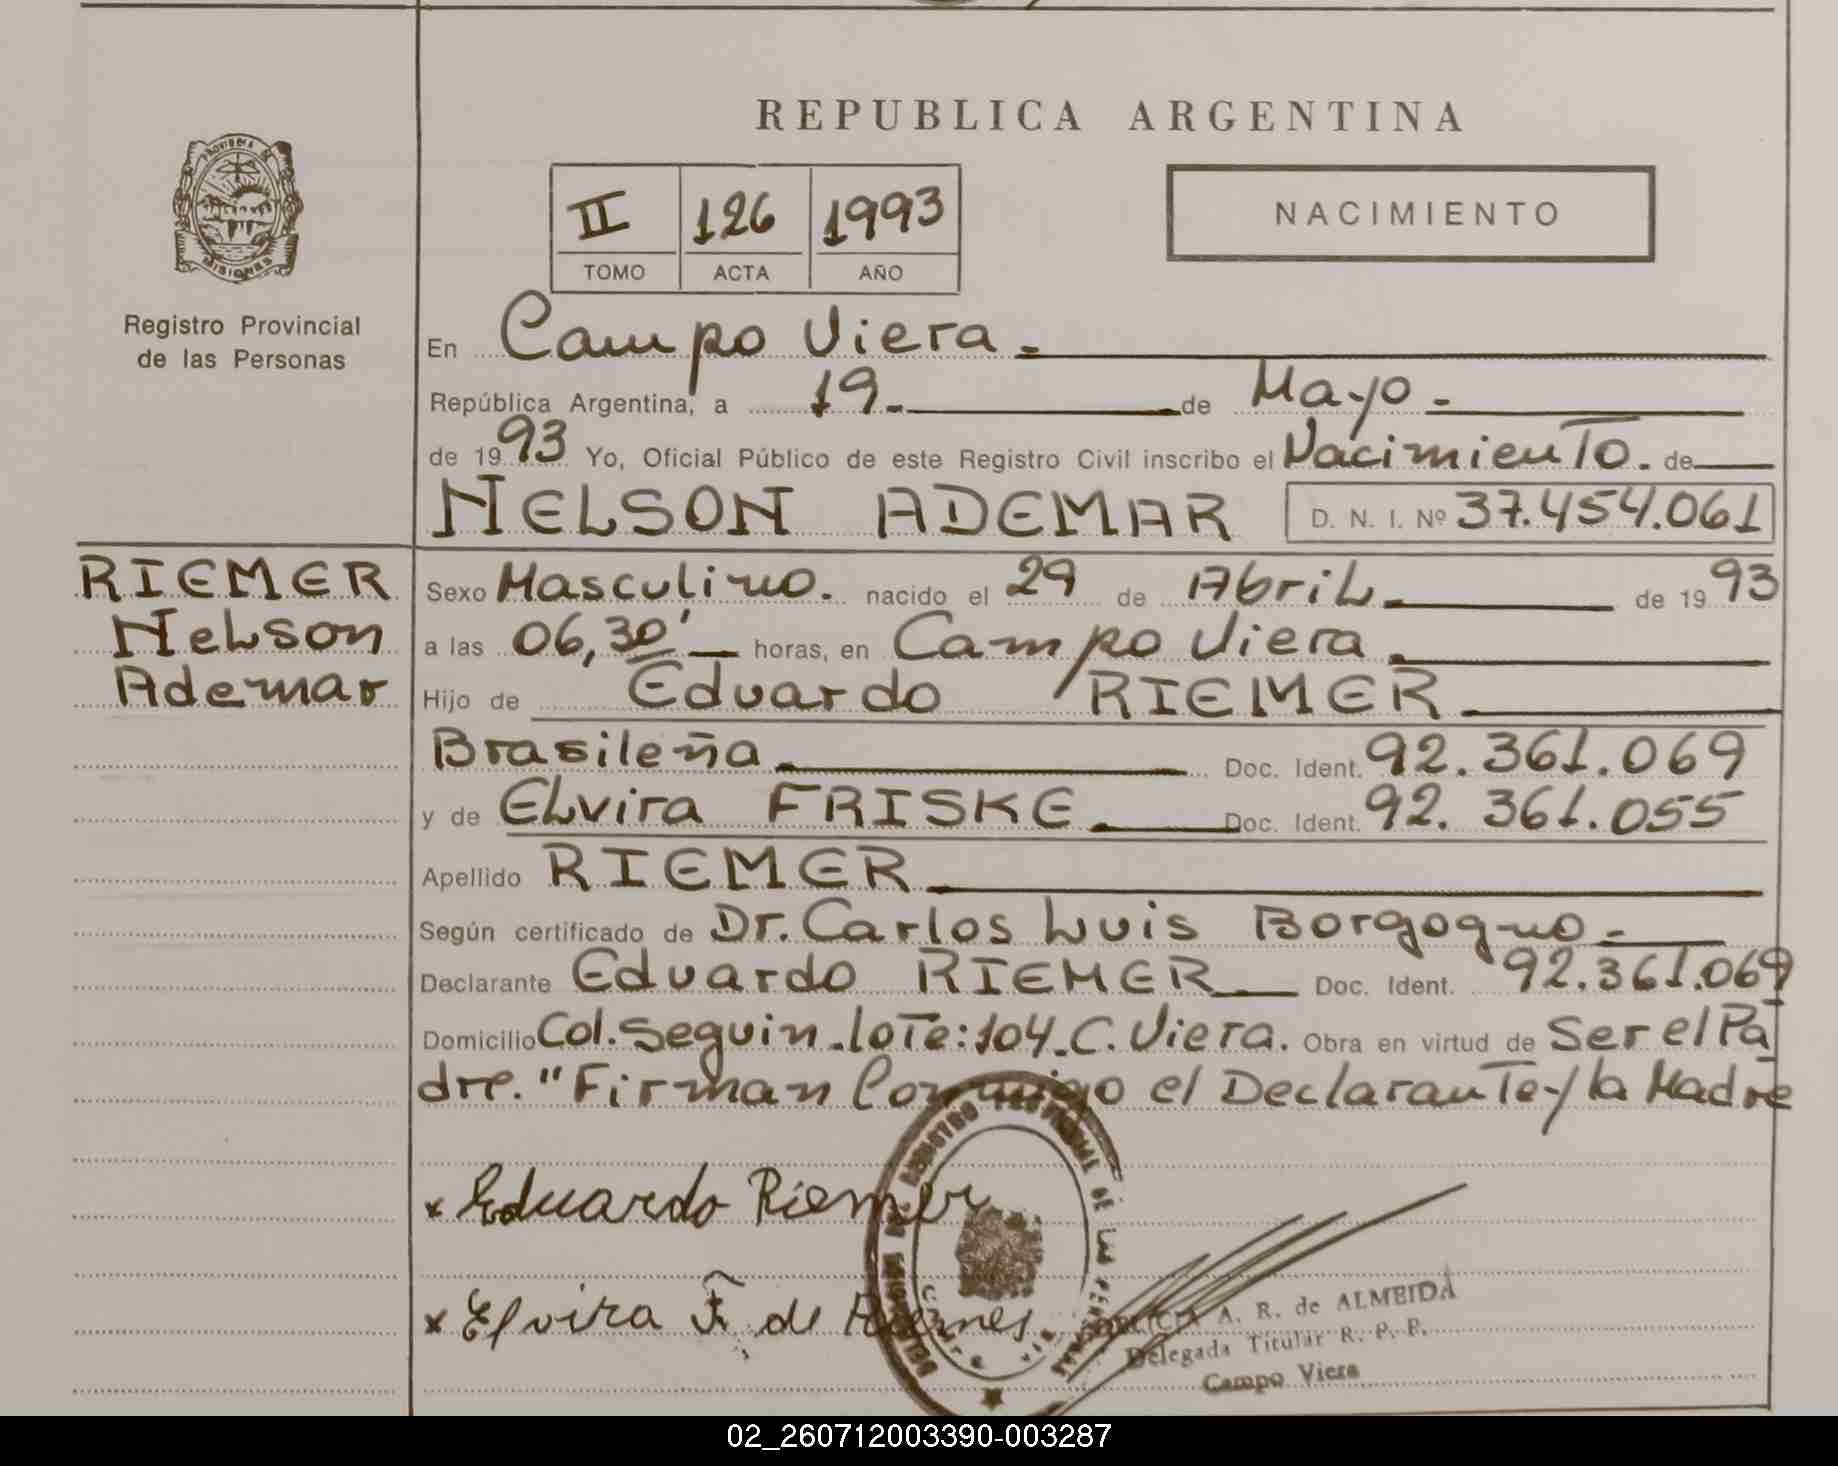 REPUBLICA ARGENTINA
PROVINCIA DE
MISIONES
Registro Provincial
de las Personas
II 126 1993
TOMO ACTA AÑO
NACIMIENTO
En Campo Viera.
República Argentina, a 19. de Mayo.
de 1993 Yo, Oficial Público de este Registro Civil inscribo el Nacimiento. de
NELSON ADEMAR D. N. I. Nº 37.454.061
RIEMER
Nelson
Ademar
Sexo Masculino. nacido el 29 de Abril. de 1993
a las 06,30' horas, en Campo Viera.
Hijo de Eduardo RIEMER
Brasileña Doc. Ident. 92.361.069
y de Elvira FRISKE Doc. Ident. 92.361.055
Apellido RIEMER
Según certificado de Dr. Carlos Luis Borgogno.
Declarante Eduardo RIEMER Doc. Ident. 92.361.069
Domicilio Col. Seguin. lote: 104. C. Viera. Obra en virtud de Ser el Pa
dre. "Firman Conmigo el Declarante y la Madre
x Eduardo Riemer
x Elvira F. de Riemer
REGISTRO PROVINCIAL DE LAS PERSONAS
A. R. de ALMEIDA
Delegada Titular R. P. P.
Campo Viera
02_260712003390-003287